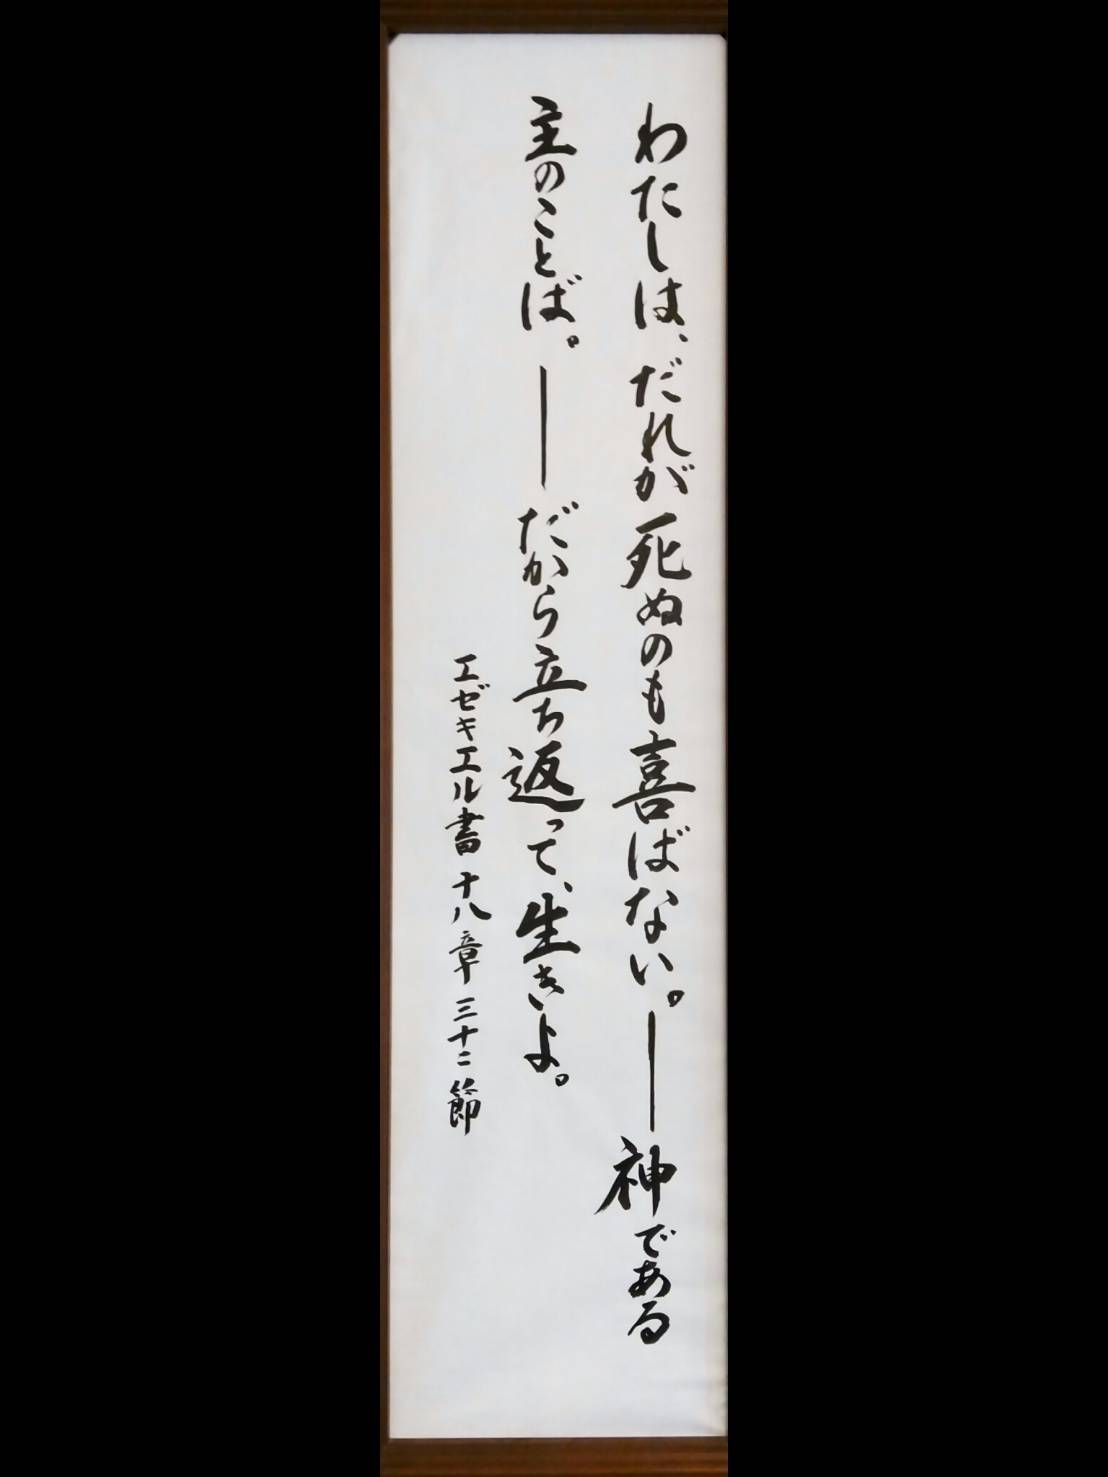 わたしは、だれが死ぬのも喜ばない。――神である
主のことば。――だから立ち返って、生きよ。
エゼキエル書 十八章 三十二節